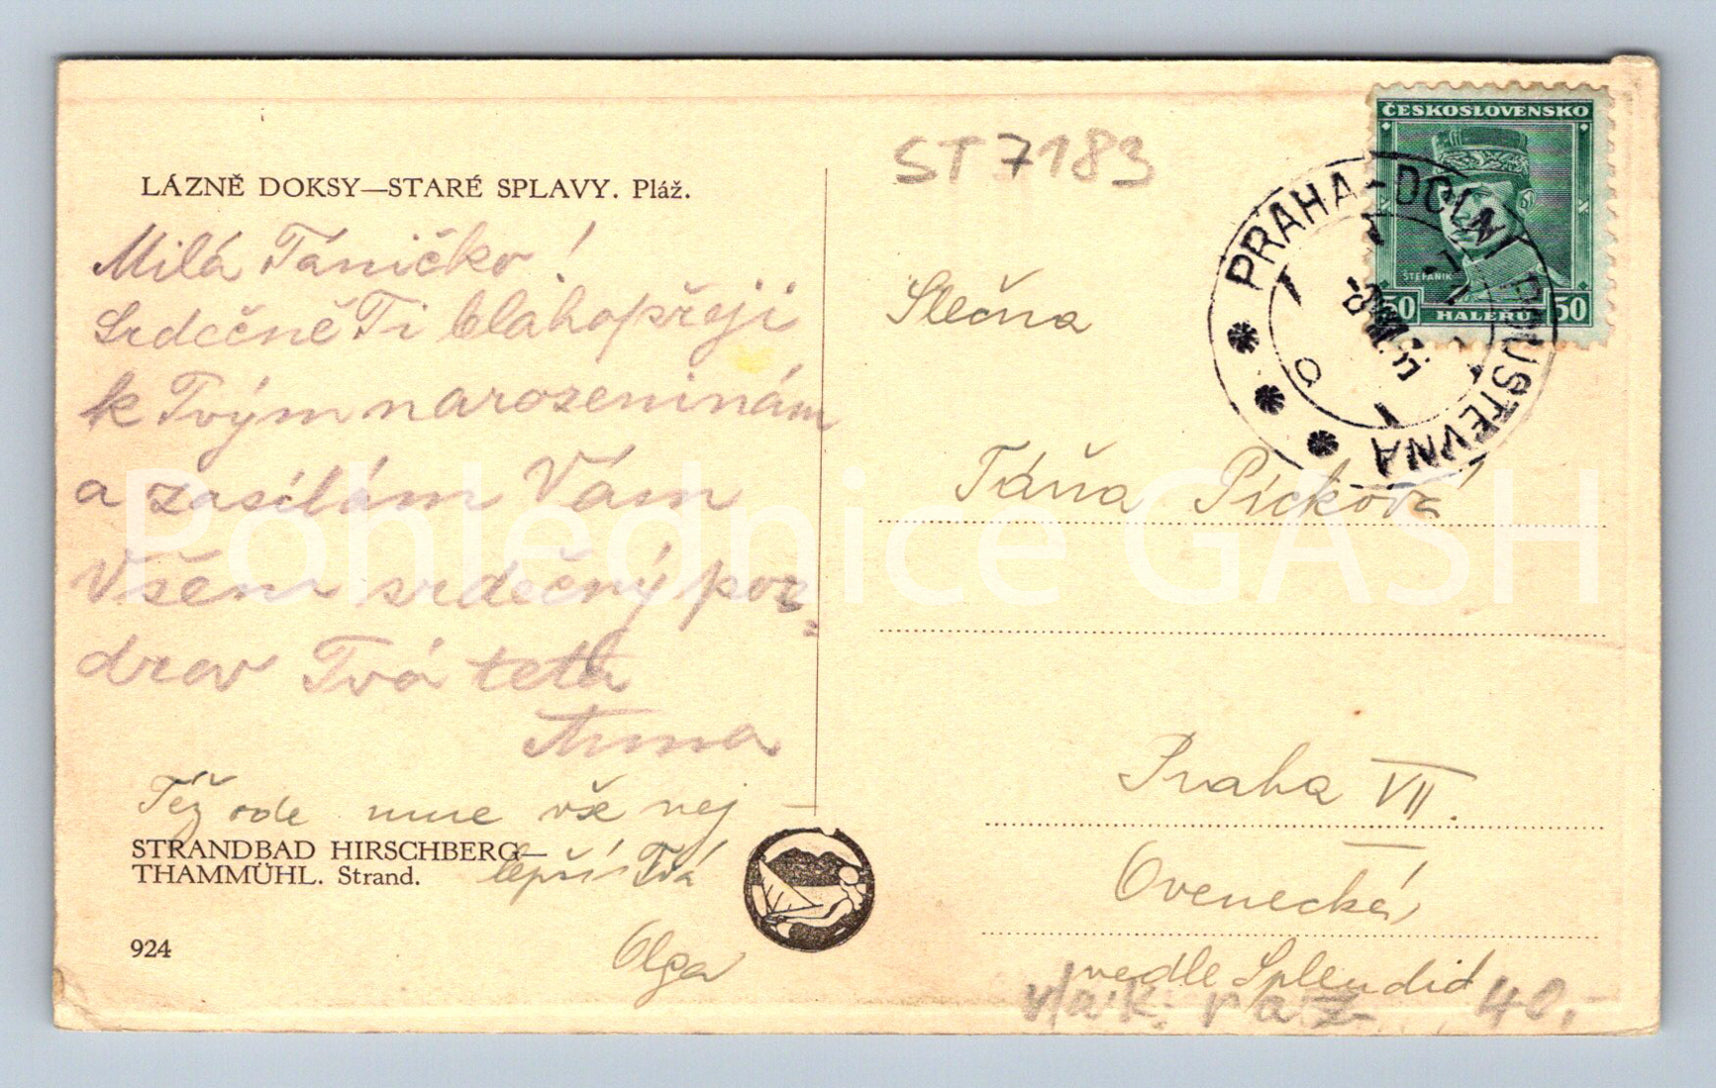 ST 7183
LÁZNĚ DOKSY—STARÉ SPLAVY. Pláž.
Milá Táničko!
Srdečně Ti blahopřeji
k Tvým narozeninám
a zasílám Vám
Všem srdečný poz=
drav Tvá teta
Anna
Též ode mne vše nej-
lepší Tvá
Olga
STRANDBAD HIRSCHBERG—
THAMMÜHL. Strand.
924
ČESKOSLOVENSKO
ŠTEFANIK
50 HALERŮ 50
PRAHA-DOLNÍ POUSTEVNA
Slečna
Táňa Picková
Praha VII.
Ovenecká
vedle Splendid
vlak. raz 40.-
Pohlednice GASH